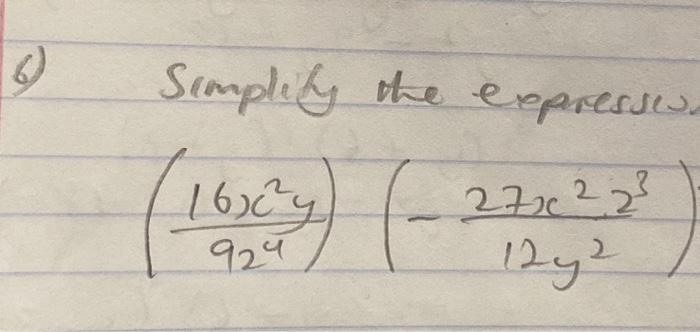 6) Simplify the expression
(16x²y / 9z⁴) (- 27x² z³ / 12y²)